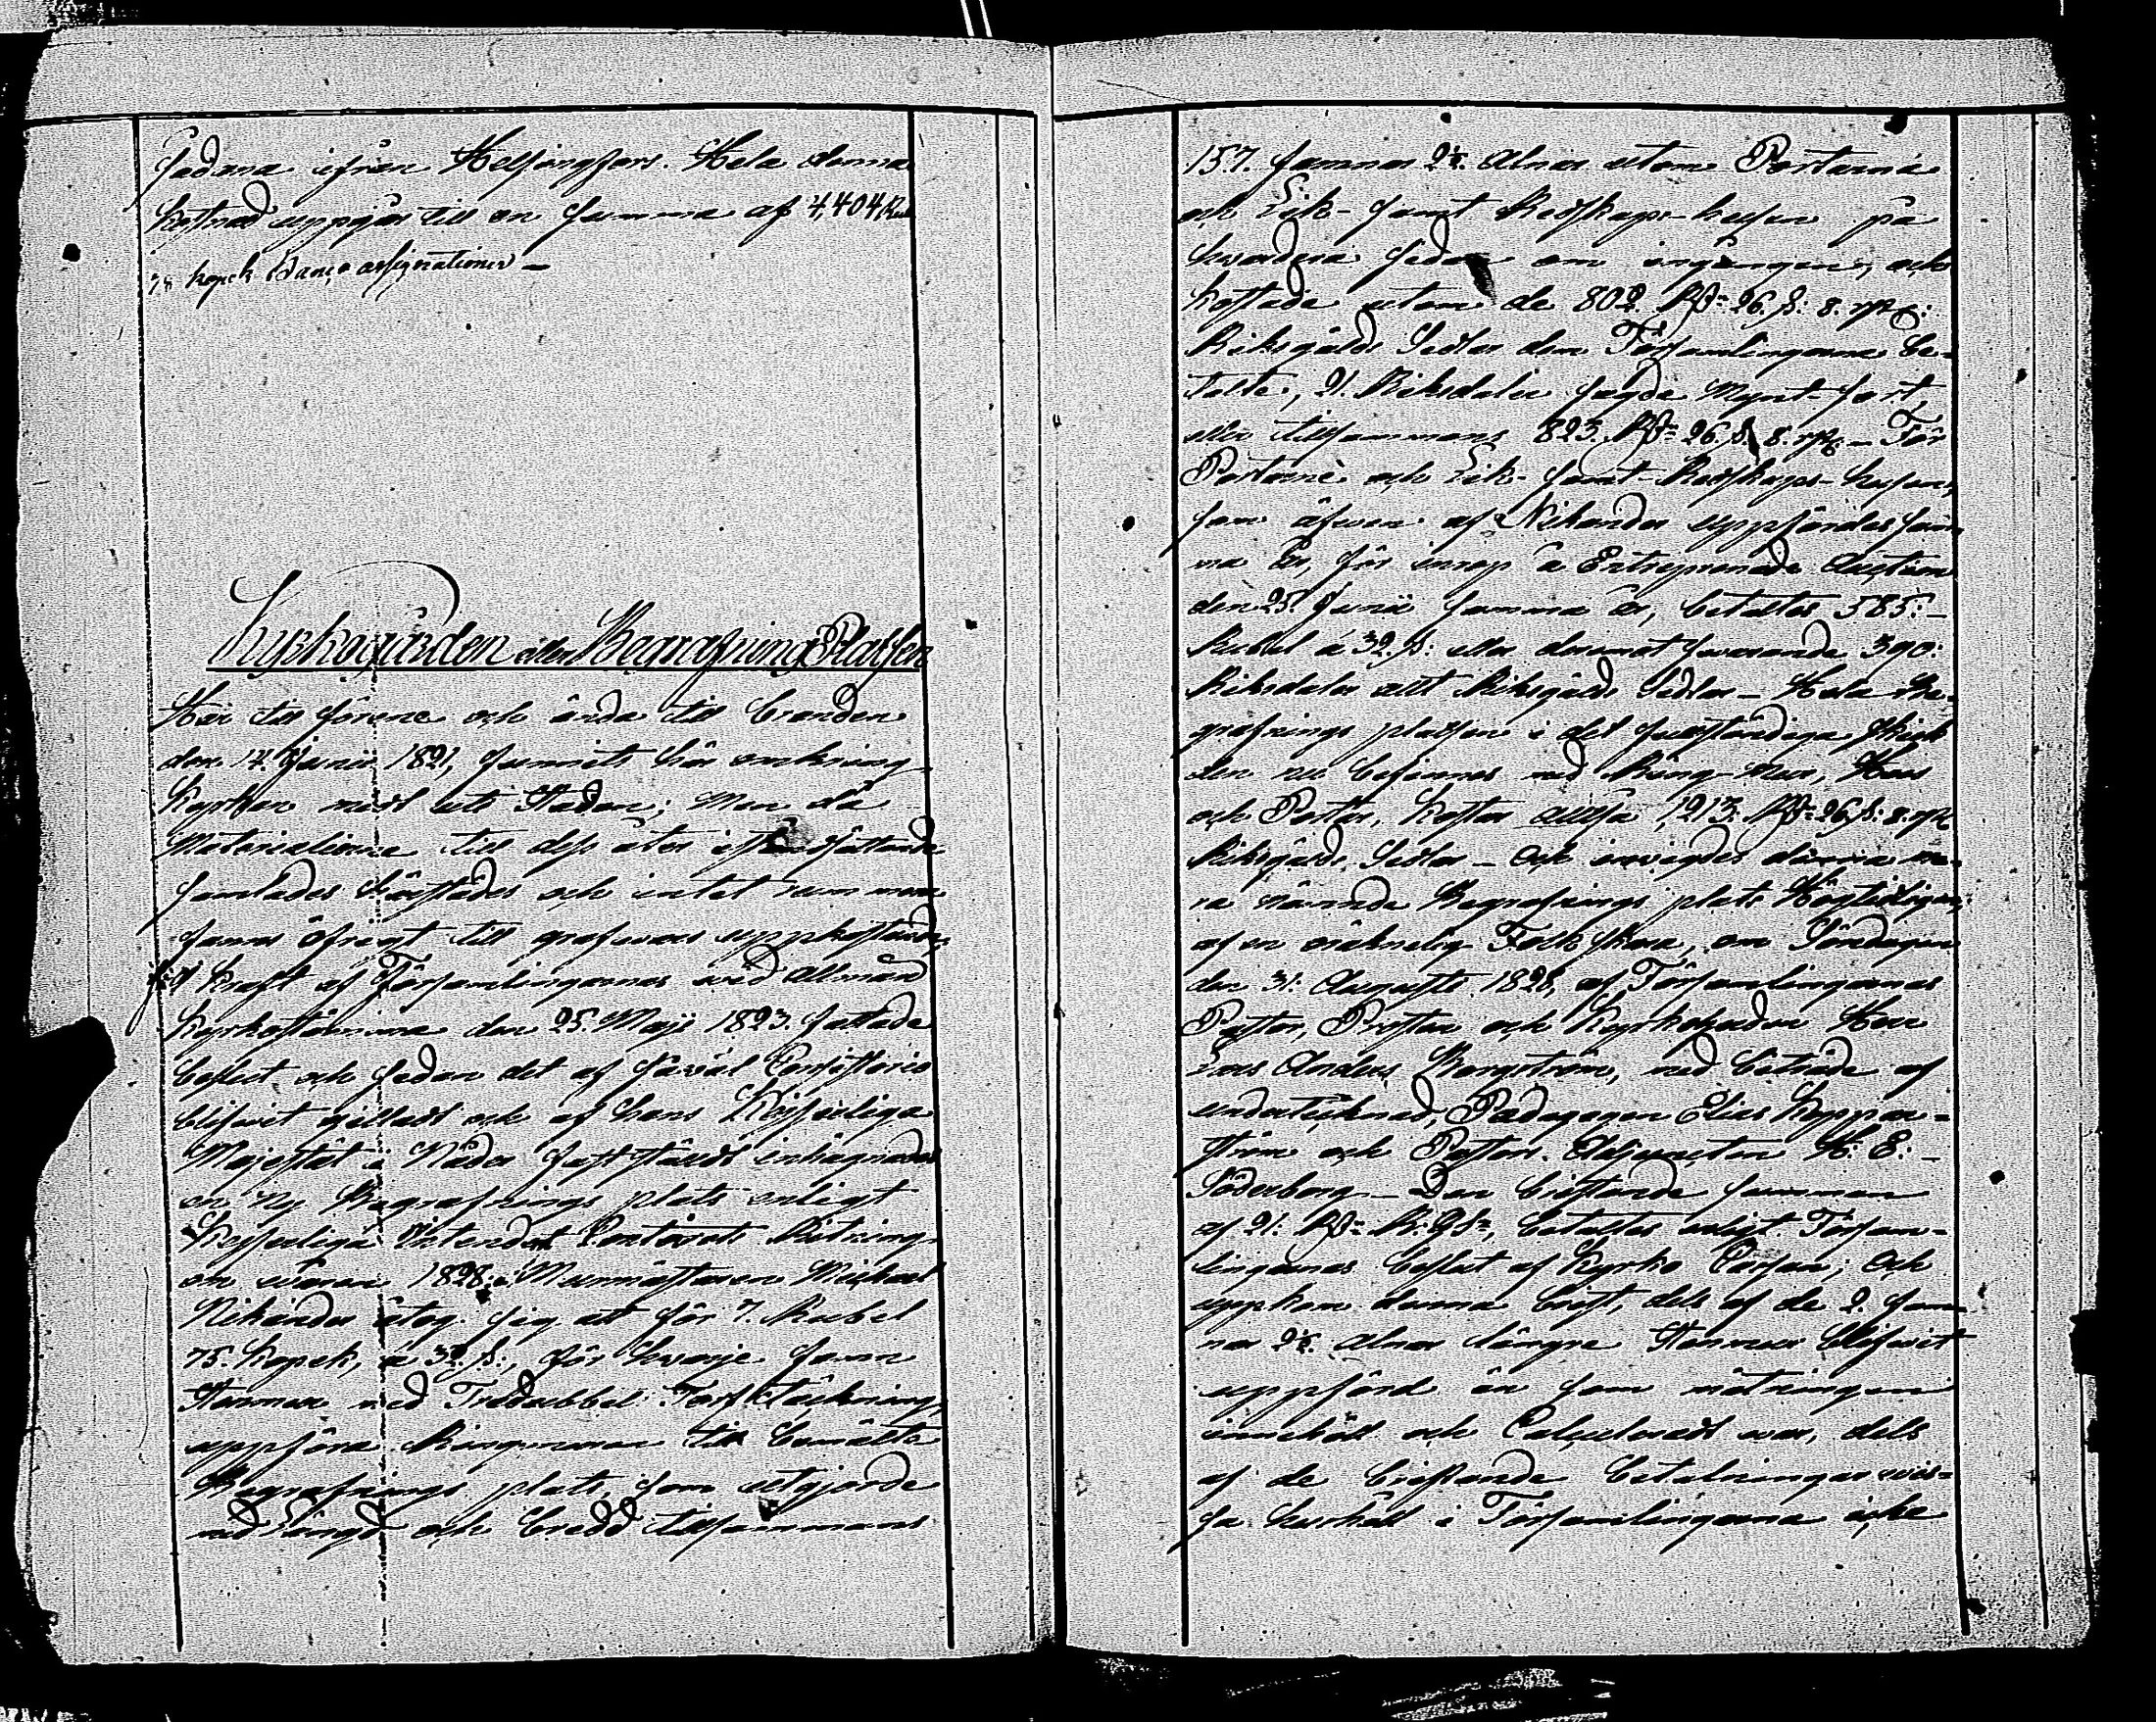 sådana ifrån Helsingfors. Hela denna
kostnad uppgår till en summa af 4,404 Rub
18 kopek Banco assignationer —
Kyrkogården eller Begrafnings Platsen
Här till förene och ända till branden
den 14. Junii 1821, funnits här omkring
kyrkan midt uti Staden; Men då
Materialierne till dess åter
samlades härstädes och intet rum mera
fanns öfrigt till grafvars uppkastande,
kraft af Församlingarnas vid Allmän
kyrkostämma den 25 Maji 1823. fattade
beslut och sedan det af såväl Consistorio
blifvit gilladt och af Hans Kejserliga
Majestät i Nåder faststäldt inhägnades
en ny Begrafnings plats enligt
Kejserliga Intendents Contoirets Ritning
om våren 1828. Murmästaren Michael
Nikander åtog sig att för 7. Rubel
75. kopek, à 32. ß:, för hvarje famn
Stenmur med Tredubbel Torftäckning,
uppföra Ringmuren till bemälte
Begrafnings plats, som utgjorde
med längd och bredd tillsammans
157. famnar 2½. Alnar utom Portarne
och Lik- samt Redskaps-husen på
hvardera sidan om ingången, och
kostade utom de 802. Rd:r 26. ß: 8. rst:
Riksgälds Sedlar dem Församlingarne be-
talte, 21. Riksdaler sagde Mynt-sort,
eller tillsammans 823. Rd:r 26. ß 8. rst. — För
Portarne och Lik- samt Redskaps-husen,
som äfven af Nikander uppfördes sam-
ma år, för inrop å Entreprenade Auction
den 25. Junii samma år, betaltes 585. —
Rubel à 32. ß: eller deremot svarande 390:
Riksdaler allt Riksgälds Sedlar — Hela Be-
grafnings platsen i det fullständiga skick
den nu befinnes med Ring-mur, Hus
och Portar, kostar alltså 1213. Rd:r 26 ß: 8. rst
Riksgälds Sedlar — Och invigdes denna
nämnde Begrafnings plats Högtidligen,
af en oräknelig Folkskara, om Söndagen
den 31. Augusti 1828, af Församlingarnas
Pastor, Prosten och Kyrkoherden Herr
Lars Anders Borgström, med biträde af
undertecknad, Pædagogen Elias Koppar-
ström och Pastors Adjuncten H. E. —
Söderborg — Den bristande summan
af 21. Rd:r R: Gs:r, betaltes enligt Försam-
lingarnas beslut af Kyrko Cassan; Och
uppkom denna brist, dels af de 2. fam-
nar 2½. alnar längre Stenmur blifvit
uppförd än som mätningen
innehöll och Calculerad var, dels
af de bristande betalningar vis-
sa hushåll i Församlingarna icke